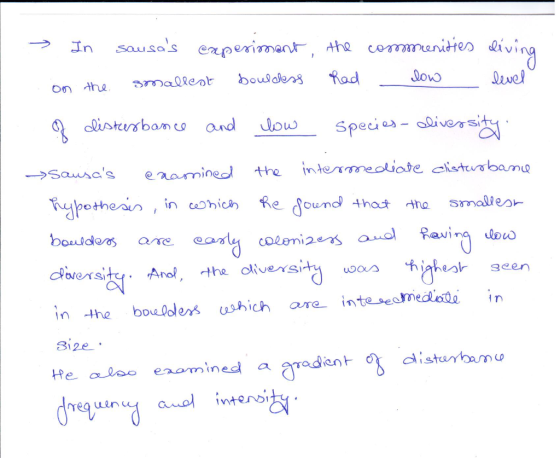 → In sausa's experiment, the communities living
on the smallest boulders had low level
of disturbance and low species-diversity.
→ Sausa's examined the intermediate disturbance
hypothesis, in which he found that the smallest
boulders are early colonizers and having low
diversity. And, the diversity was highest seen
in the boulders which are intermediate in
size.
He also examined a gradient of disturbance
frequency and intensity.